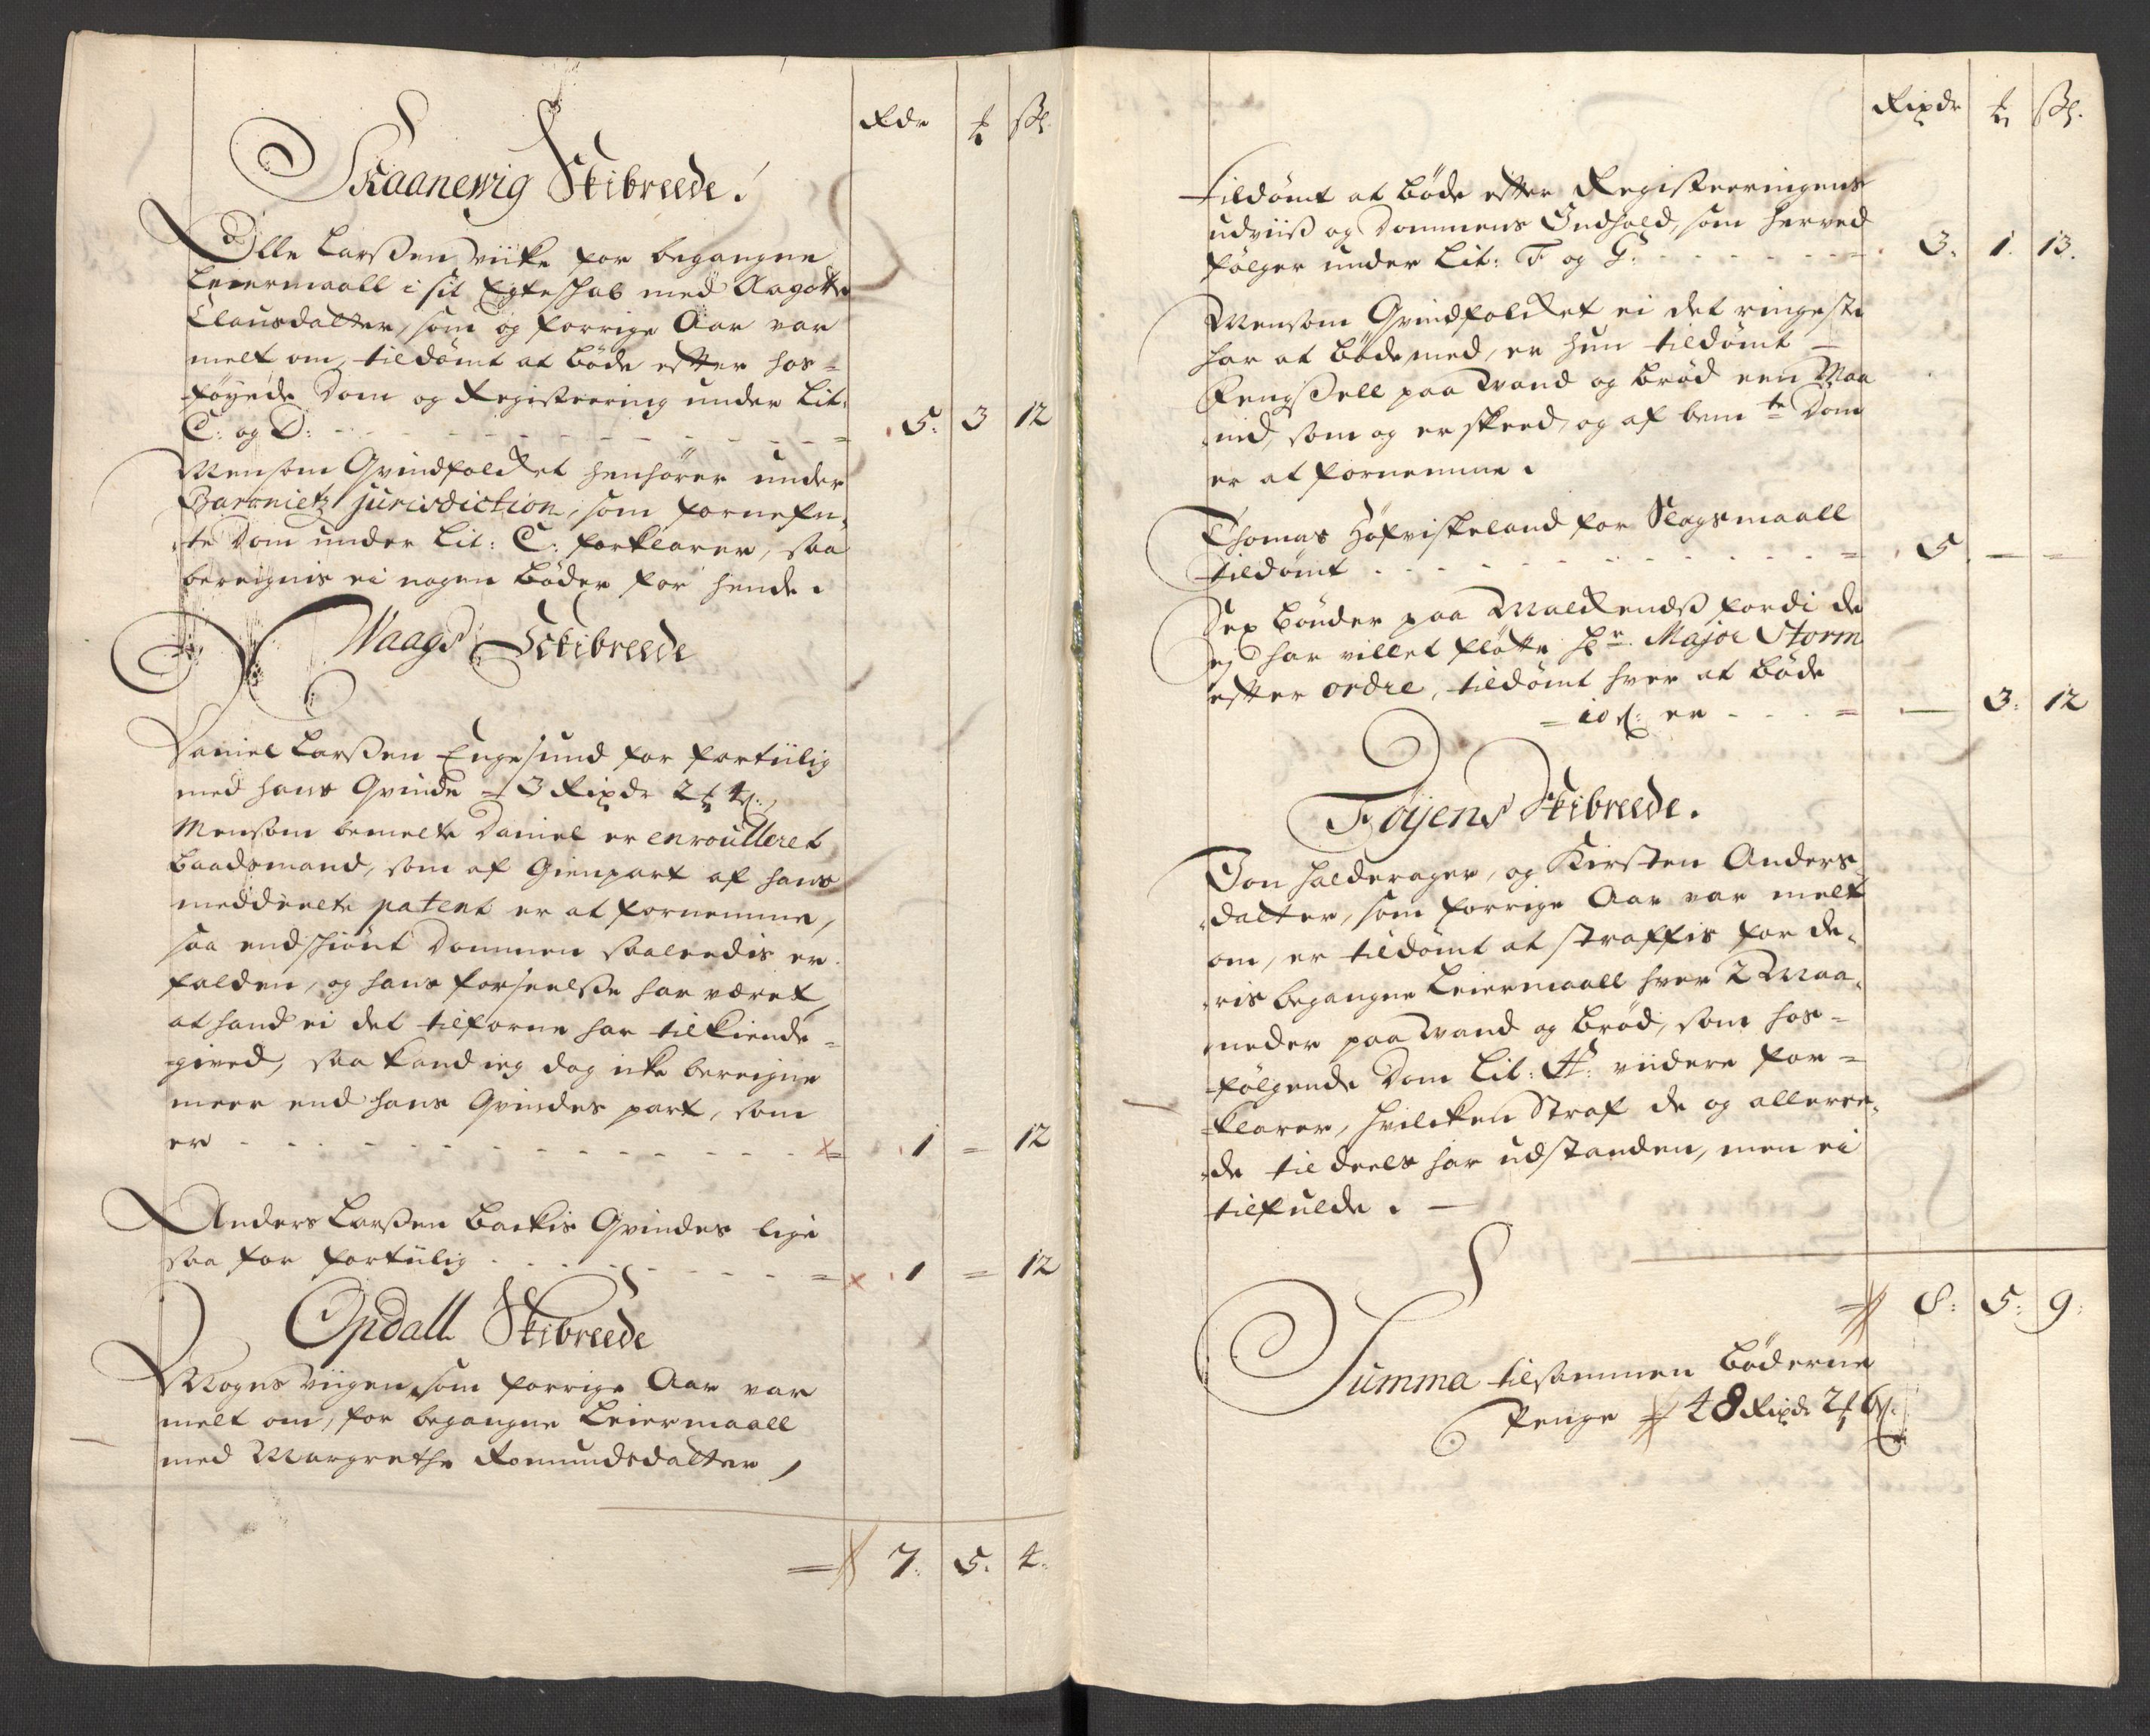 Rdr ₰ ßl.
Skaanevig Skibreede.
Olle Larßen viike for begangne
Leiermaall i sit Egteschab med Aagotte
Clausdatter, som og forrige Aar var
melt om, tildømt at bøde efter hos=
føyede Dom og Registering under Lit:
C: og D: 5: 3 12
Mensom Qvindfolcket henhører under
Baroniets jurisdiction, som fornefn¬
te Dom under Lit: C: forklarer, saa
beregnis ei nogen bøder for hende.
Waags Sckibreede
Daniel Larßen Engesund for fortiilig
med hans Qvinde = 3 Rixdr 2 ₰ 4 ß.,
Mensom bemelte Daniel er enroulleret
baadsmand, som af Gienpart af hans
meddeelte patent er at fornemme,
saa endschiønt Dommen saaleedis er
falden, og hans forseelße har været,
at hand ei det tilforne har tilkiende=
gived, saa kand ieg dog icke beregne
meer end hans Qvindes part, som
er 1 = 12
Anders Larßen backis Qvindes lige
saa for fortiilig 1 = 12
Opdall Skibreede
Mogns viigen, som forrige Aar var
melt om, for begangne Leiermaall
med Margrethe Romundsdatter,
7: 5: 4:
Rixdr ₰ ßl.
tildømt at bøde efter Registeringens
udviiß og Dommens Indhold, som herved
følger under Lit: F og G: 3. 1. 13.
Mensom Qvindfolcket ei det ringeste
har at bøde med, er hun tildømt
Fengßell paa vand og brød een Maa
ned, som og er skeed, og af bemte Dom
er at fornemme.
Thomas Høfviskeland for Slagsmaall
tildømt 5 — =
Sex bønder paa Malckends fordi de
ej har villet fløtte Hr. Major Storm
efter ordre, tildømt hver at bøde
10 ß: er — 3: 12
Føyens Skibreede.
Jon Halderager, og Kirsten Anders¬
datter, som forrige Aar var melt
om, er tildømt at straffis for de¬
ris begangne Leiermaall hver 2 Maa¬
neder paa vand og brød, som hos=
følgende Dom Lit: H: viidere for=
klarer, hvilcken Straf de og alleree¬
de til deels har udstanden, men ei
tilfulde.
8: 5: 9:
Summa tilsammen bøderne
Penge 48 Rixdr 2 ₰ 6 ß.